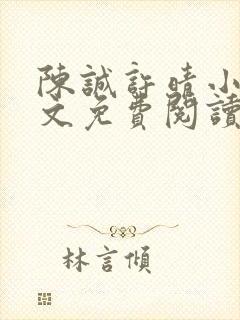 陳誠許晴小
文免費閱讀
林言傾